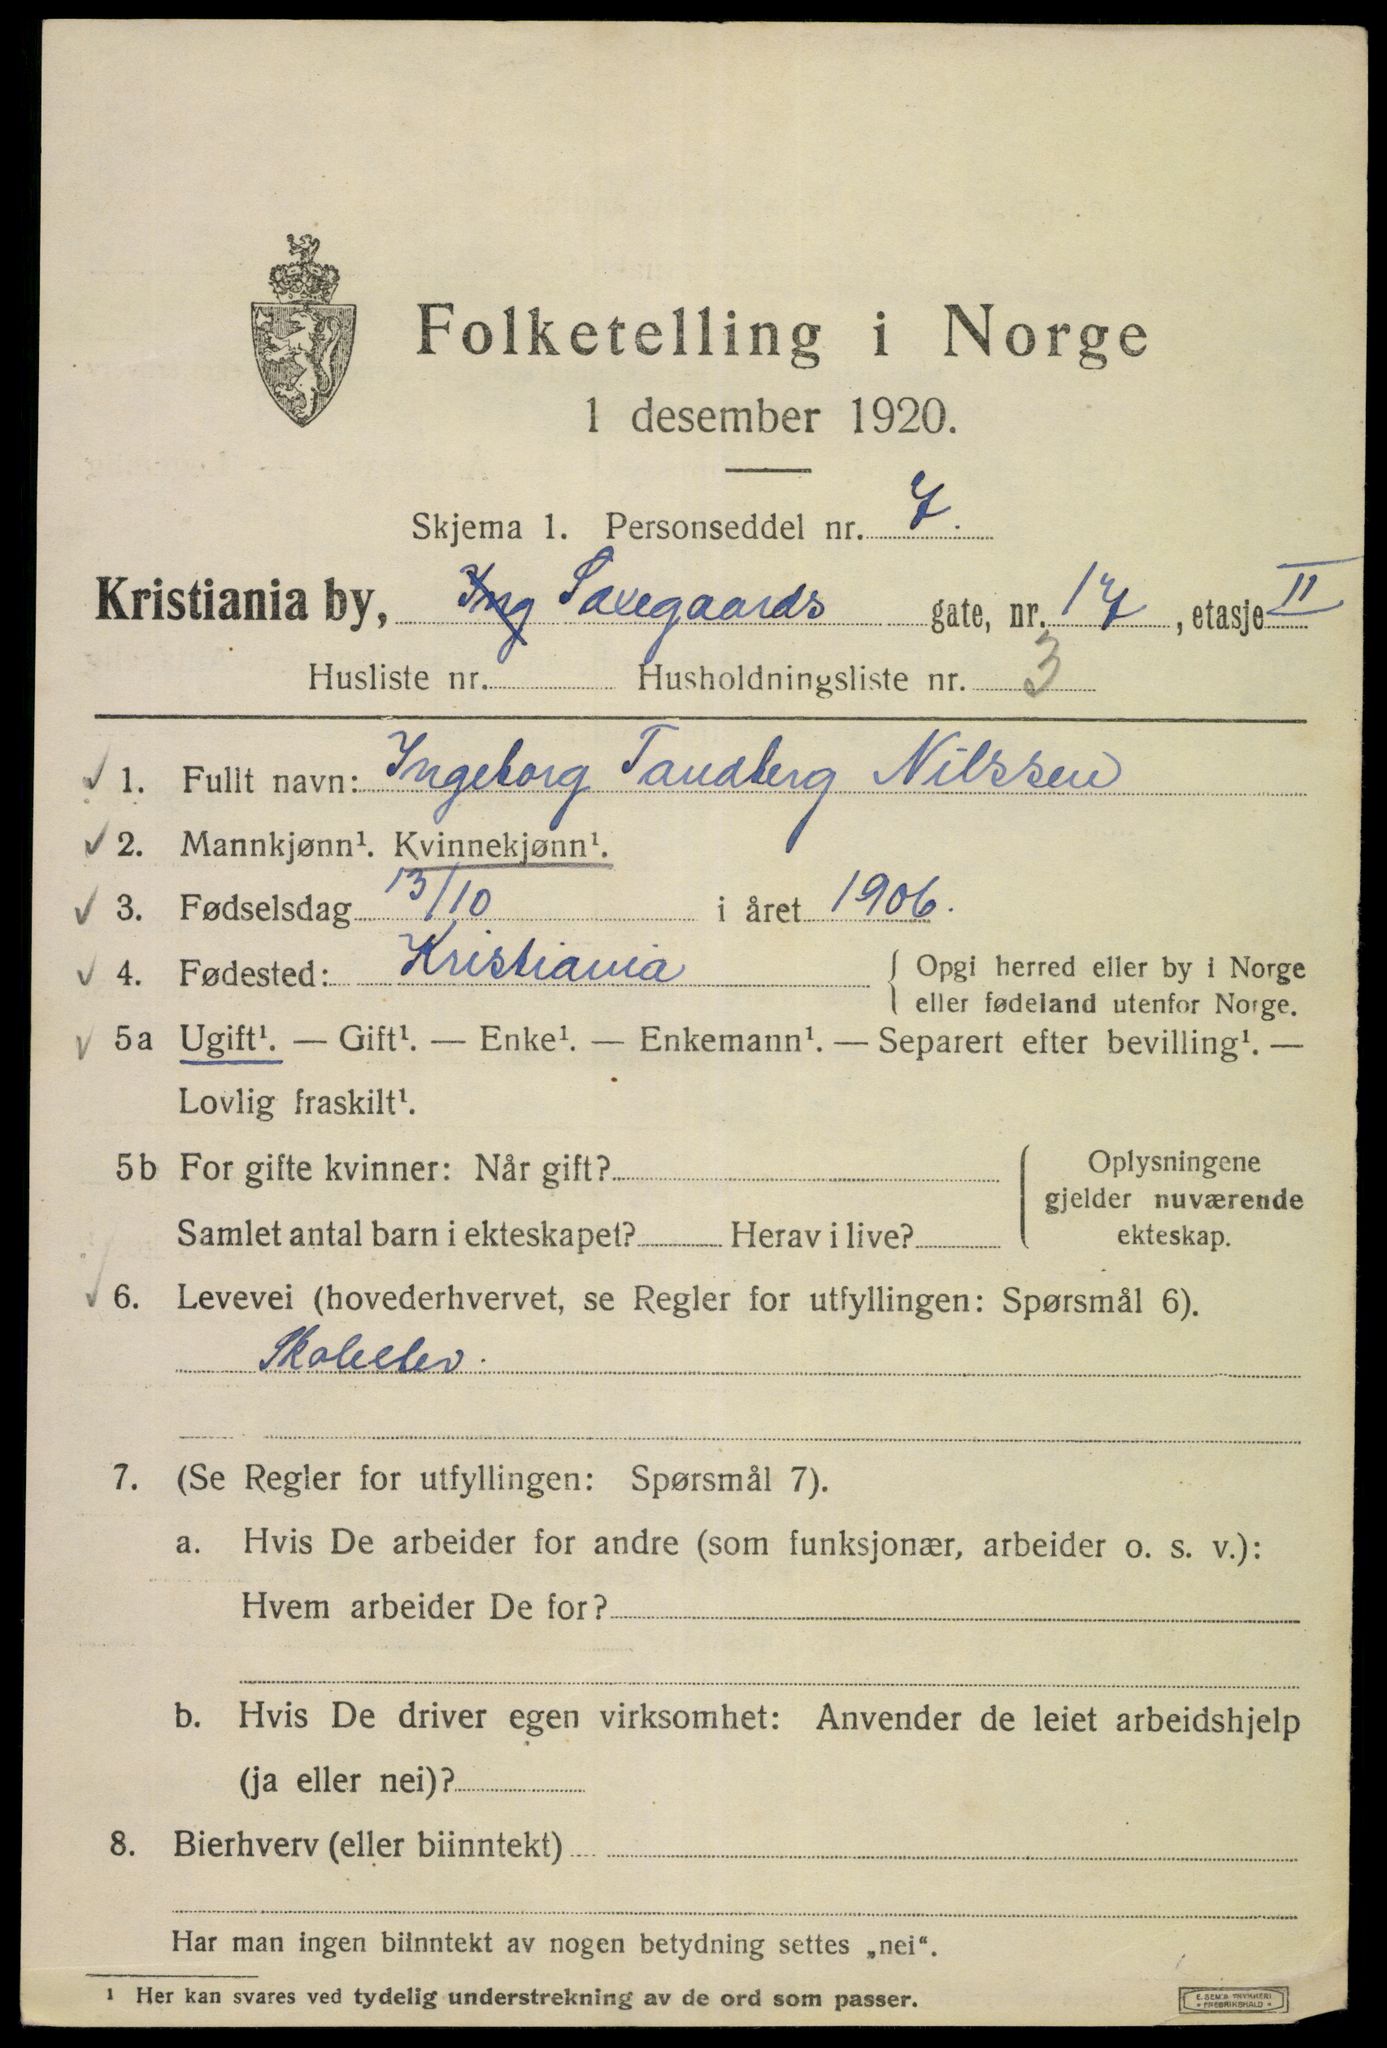 Folketelling i Norge
1 desember 1920.
Skjema 1. Personseddel nr. 7.
Kristiania by, Ing Saxegaards gate, nr. 17, etasje II
Husliste nr. Husholdningsliste nr. 3
1. Fullt navn: Ingeborg Tandberg Nilssen
2. Mannkjønn¹. Kvinnekjønn¹.
3. Fødselsdag 13/10 i året 1906.
4. Fødested: Kristiania { Opgi herred eller by i Norge
eller fødeland utenfor Norge.
5a Ugift¹. — Gift¹. — Enke¹. — Enkemann¹. — Separert efter bevilling¹. —
Lovlig fraskilt¹.
5b For gifte kvinner: Når gift?
Samlet antal barn i ekteskapet? Herav i live?
Oplysningene
gjelder nuværende
ekteskap.
6. Levevei (hovederhvervet, se Regler for utfyllingen: Spørsmål 6).
Skoleelev.
7. (Se Regler for utfyllingen: Spørsmål 7).
a. Hvis De arbeider for andre (som funksjonær, arbeider o. s. v.):
Hvem arbeider De for?
b. Hvis De driver egen virksomhet: Anvender de leiet arbeidshjelp
(ja eller nei)?
8. Bierhverv (eller biinntekt)
Har man ingen biinntekt av nogen betydning settes „nei“.
¹ Her kan svares ved tydelig understrekning av de ord som passer.
E. SEM'S TRYKKERI
FREDRIKSHALD